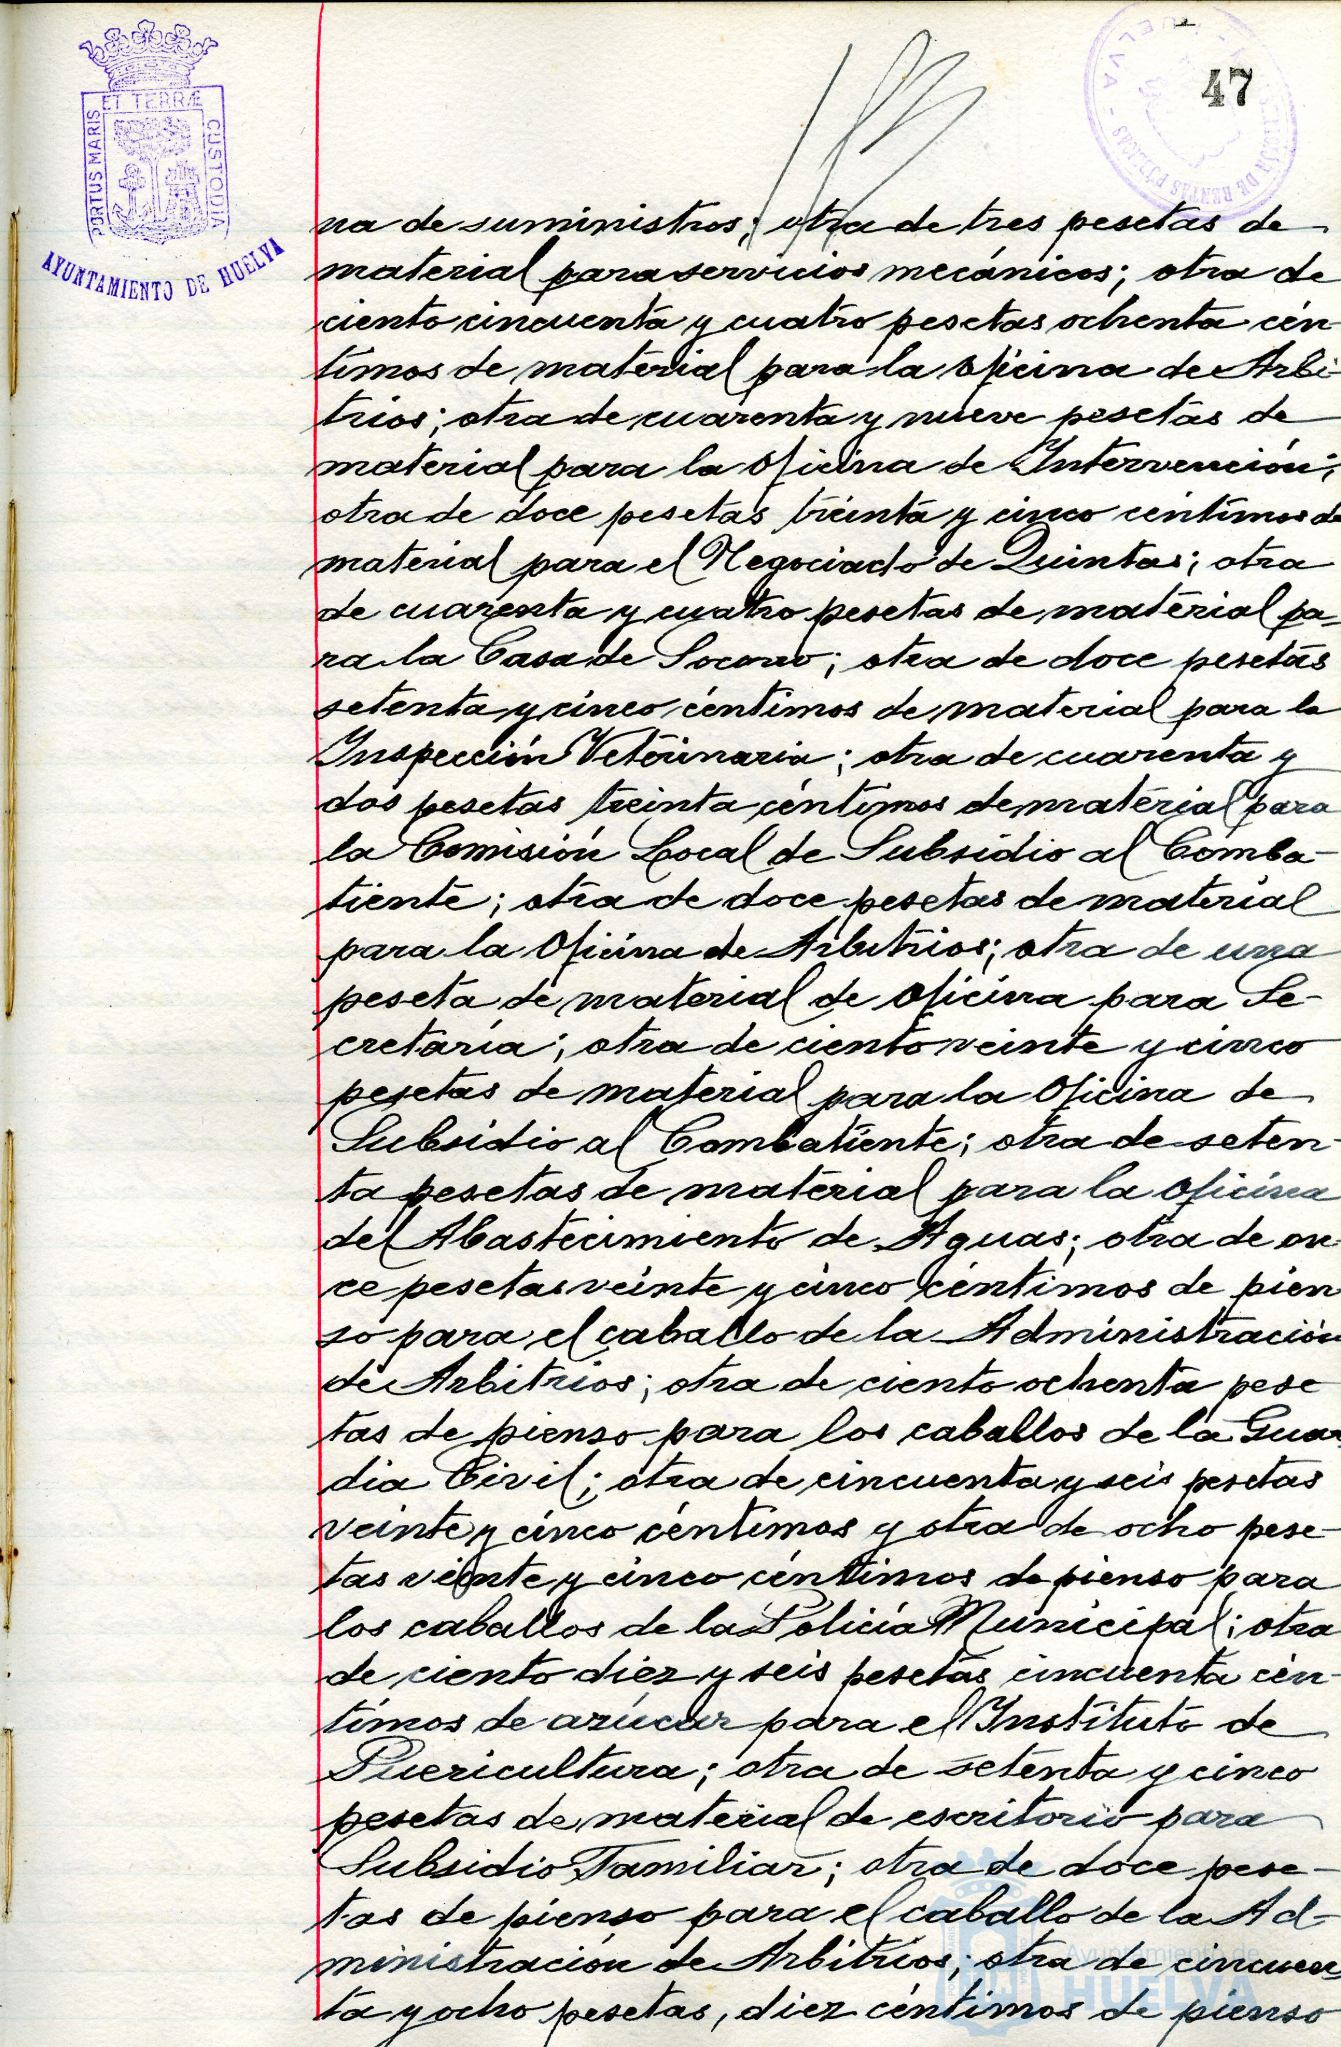 47
PORTUS MARIS ET TERRÆ CUSTODIA
AYUNTAMIENTO DE HUELVA
na de suministros; otra de tres pesetas de
material para servicios mecánicos; otra de
ciento cincuenta y cuatro pesetas ochenta cén-
timos de material para la oficina de Arbi-
trios; otra de cuarenta y nueve pesetas de
material para la oficina de Intervención;
otra de doce pesetas treinta y cinco céntimos de
material para el Negociado de Quintas; otra
de cuarenta y cuatro pesetas de material pa-
ra la Casa de Socorro; otra de doce pesetas
setenta y cinco céntimos de material para la
Inspección Veterinaria; otra de cuarenta y
dos pesetas treinta céntimos de material para
la Comisión Local de Subsidio al Comba-
tiente; otra de doce pesetas de material
para la Oficina de Arbitrios; otra de una
peseta de material de oficina para Se-
cretaría; otra de ciento veinte y cinco
pesetas de material para la Oficina de
Subsidio al Combatiente; otra de seten-
ta pesetas de material para la oficina
del Abastecimiento de Aguas; otra de on-
ce pesetas veinte y cinco céntimos de pien
so para el caballo de la Administración
de Arbitrios; otra de ciento ochenta pese
tas de pienso para los caballos de la Guar
dia Civil; otra de cincuenta y seis pesetas
veinte y cinco céntimos y otra de ocho pese-
tas veinte y cinco céntimos de pienso para
los caballos de la Policía Municipal; otra
de ciento diez y seis pesetas cincuenta cén-
timos de azúcar para el Instituto de
Puericultura; otra de setenta y cinco
pesetas de material de escritorio para
Subsidio Familiar; otra de doce pese-
tas de pienso para el caballo de la Ad-
ministración de Arbitrios; otra de cincuen
ta y ocho pesetas, diez céntimos de pienso
Ayuntamiento de
HUELVA